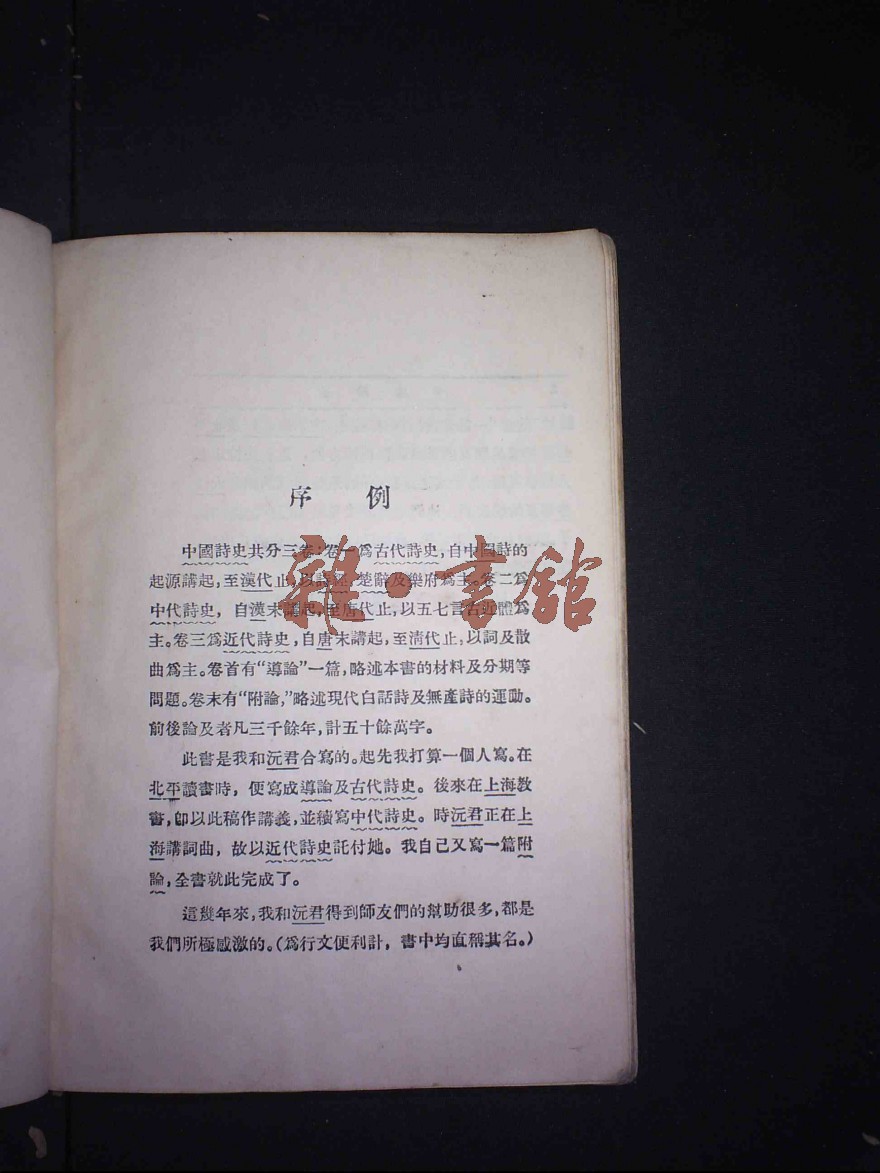 序例
中國詩史共分三卷：卷一爲古代詩史，自中國詩的
起源講起，至漢代止，以詩經，楚辭及樂府爲主。卷二爲
中代詩史，自漢末講起，至唐代止，以五七言古近體爲
主。卷三爲近代詩史，自唐末講起，至清代止，以詞及散
曲爲主。卷首有“導論”一篇，略述本書的材料及分期等
問題。卷末有“附論，”略述現代白話詩及無產詩的運動。
前後論及者凡三千餘年，計五十餘萬字。
此書是我和沅君合寫的。起先我打算一個人寫。在
北平讀書時，便寫成導論及古代詩史。後來在上海教
書，卽以此稿作講義，並續寫中代詩史。時沅君正在上
海講詞曲，故以近代詩史託付她。我自己又寫一篇附
論，全書就此完成了。
這幾年來，我和沅君得到師友們的幫助很多，都是
我們所極感激的。（爲行文便利計，書中均直稱其名。）
雜·書館